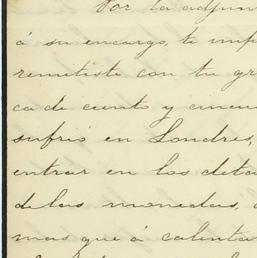 Por la adjun
á su encargo, te imp
remitiste con tu gr
ca de ciento y cincue
sufrió en Londres,
entrar en los deta
de las monedas,
mas que á calenta